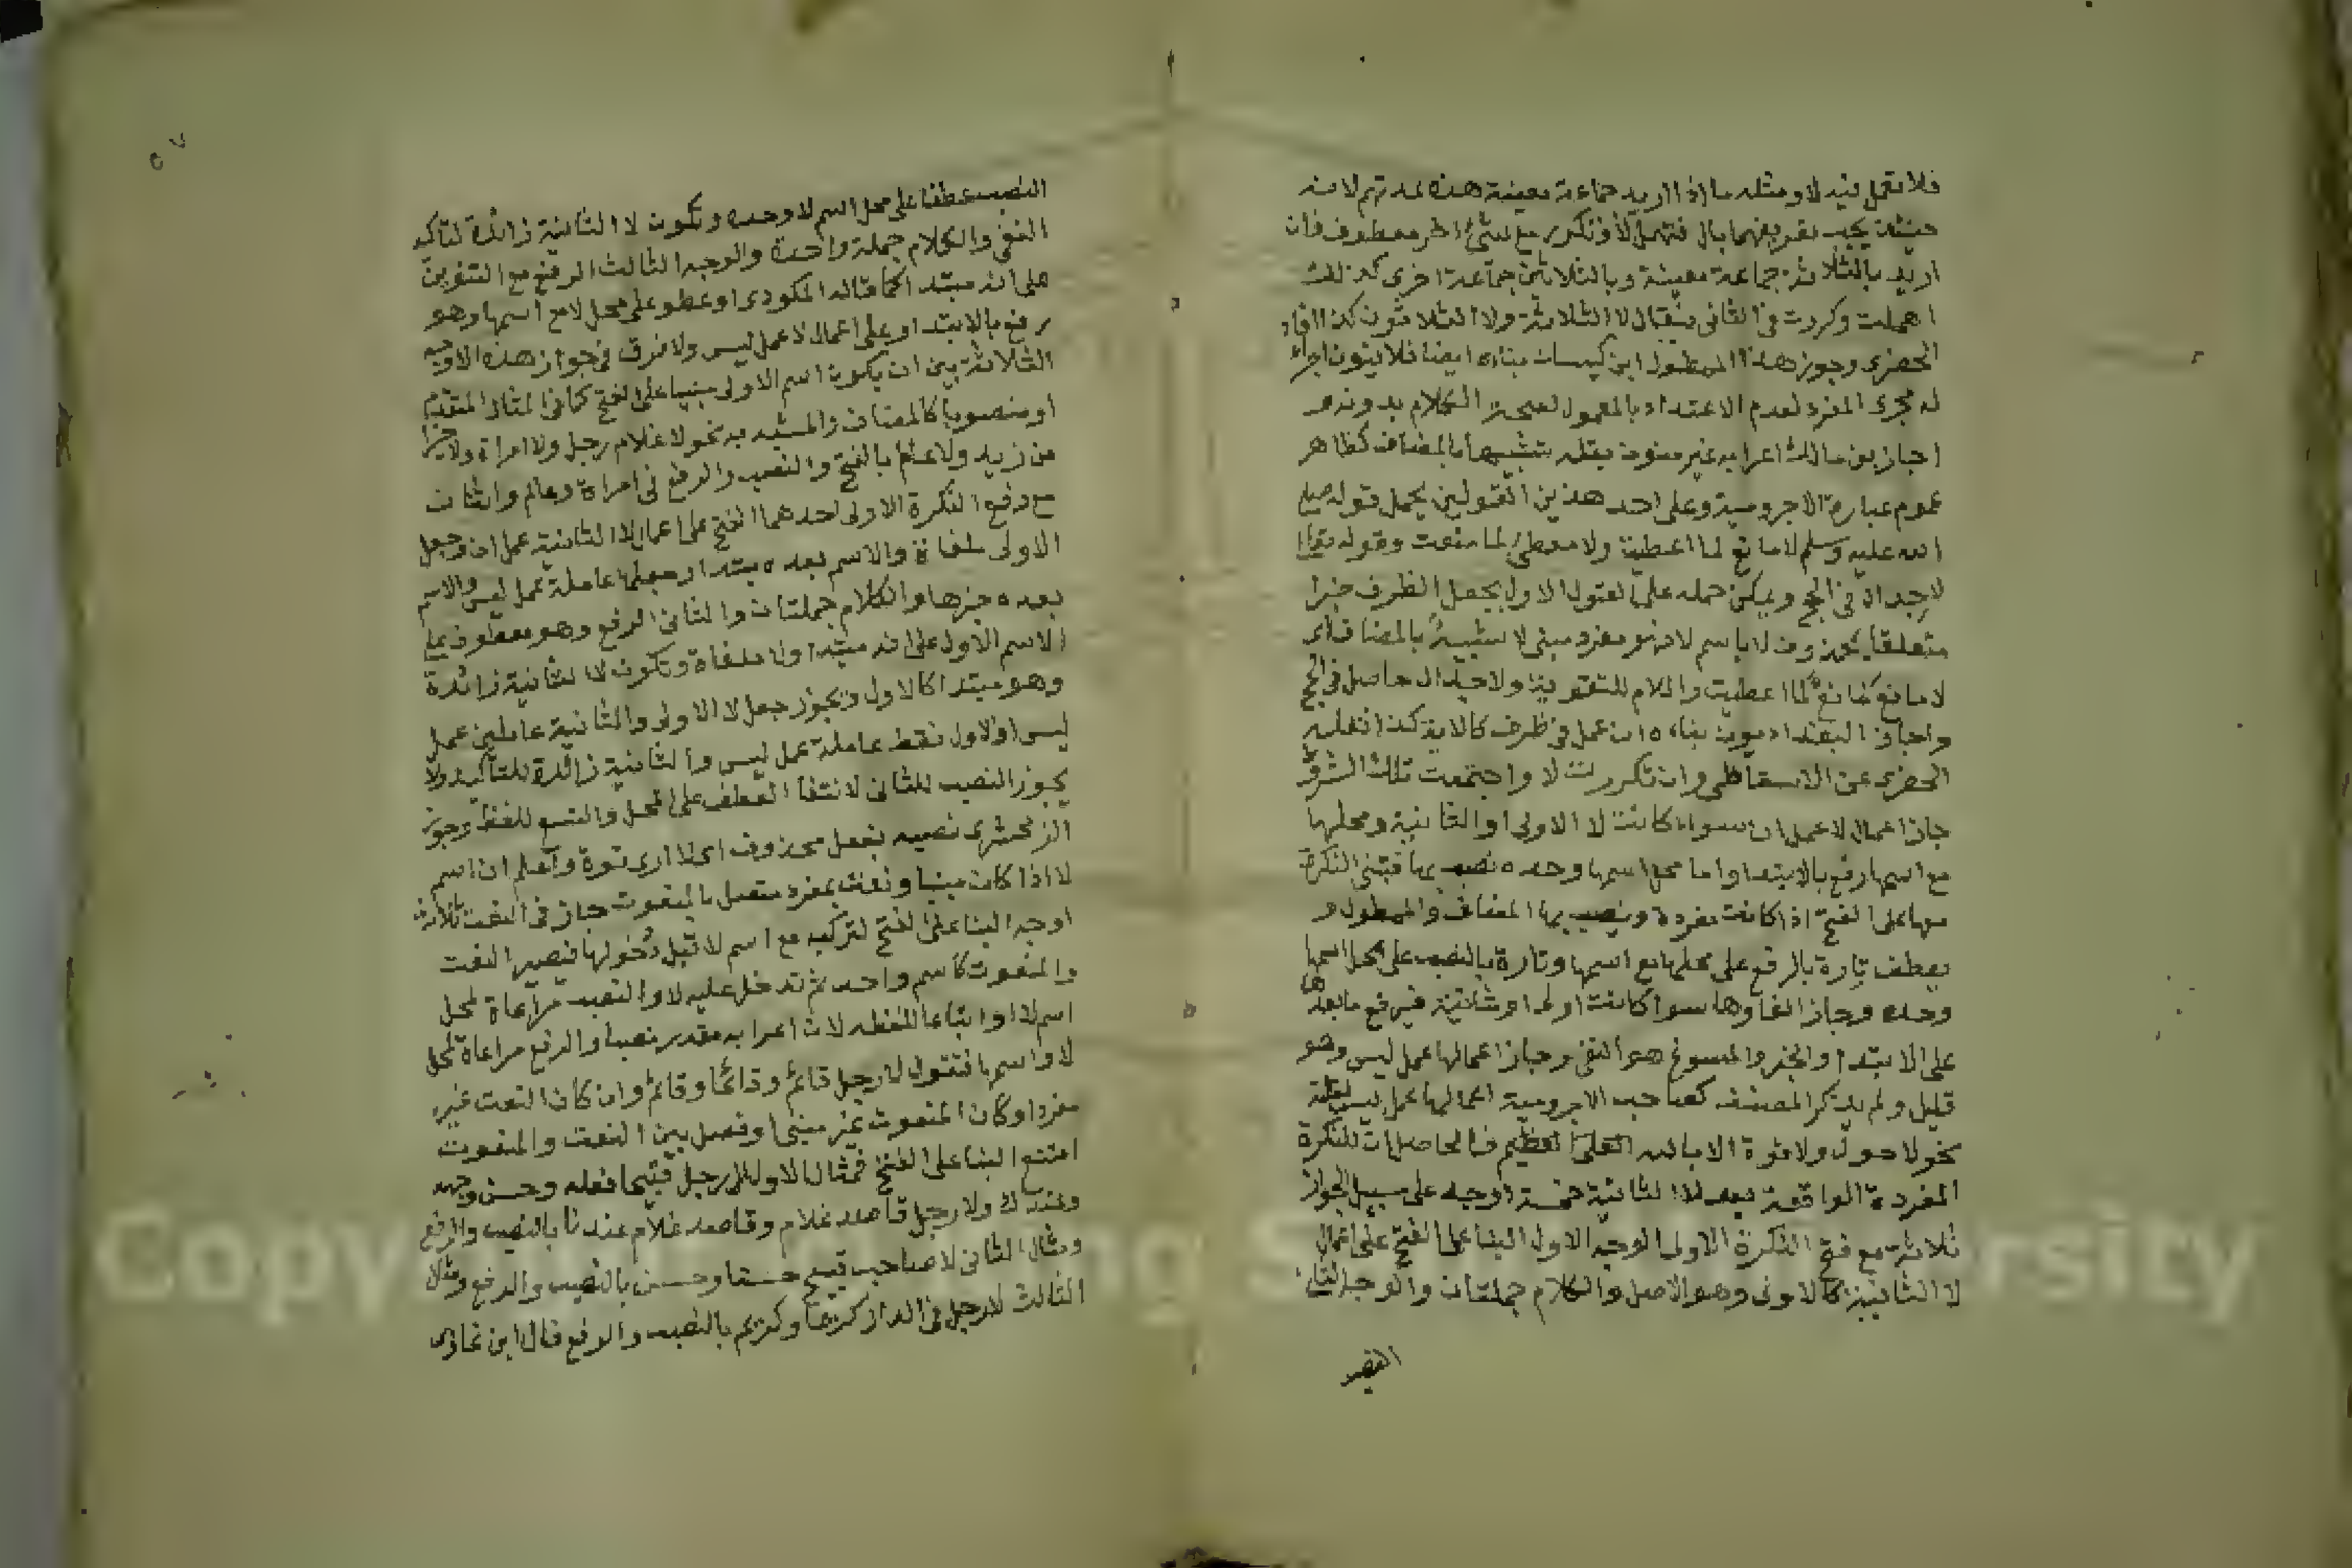 فلا تعمل فيه لا ومثله ما اذا اريد جماعة معينة هذه عدتهم لانه
حينئذ يجب تعريفهما بال فتهمل لا وتكرر مع لشئ اخر معطوف فان
اريد بالثلاثة جماعة معينة وبالثلاثين جماعة اخرى كذلك
اهملت وكررت في الثاني فيقال لا الثلاثة ولا الثلاثون كذا افاد
الحضرى وجوز هذا الممطول ابن كيسان بناءه ايضا فلا ينون اجراء
له مجرى المفرد لعدم الاعتداد بالمعمول لصحة الكلام بدونه و
اجاز بن مالك اعرابه غير منون بقلة تشبيها بالمضاف كظاهر
عموم عبارة الاجرومية وعلى احد هذين القولين يحمل قوله صلى
الله عليه وسلم لا مانع لما اعطيت ولا معطي لما منعت وقوله تعالى
لا جدال في الحج ويمكن حمله على القول الاول بجعل الظرف خبرا
متعلقا بمحذوف لا باسم لا فهو مفرد مبنى لا شبيه بالمضاف اى
لا مانع مانع لما اعطيت واللام للتقوية ولا جدال حاصل في الحج
واجاز البغداديون بناءه ان عمل في ظرف كالاية كذا نقله
الحضرى عن الاسقاطى وان تكررت لا واجتمعت تلك الشروط
جاز اعمال لا عمل ان سواء كانت لا الاولى او الثانية ومحلها
مع اسمها رفع بالابتدا واما محل اسمها وحده نصب بها فتبنى النكرة
معها على الفتح اذا كانت مفردة وينصب بها المضاف والممطول و
يعطف تارة بالرفع على محلها مع اسمها وتارة بالنصب على محل اسمها
وحده وجاز الغاوها سوا كانت اولى او ثانية فيرفع ما بعدها
على الابتدا والخبر والمسوغ هو النفى وجاز اعمالها عمل ليس وهو
قليل ولم يذكر المصنف كصاحب الاجرومية اعمالها عمل ليس لقلته
نحو لا حول ولا قوة الا بالله العلى العظيم فالحاصل ان للنكرة
المفردة الواقعة بعد لا الثانية خمسة اوجه على سبيل الجواز
ثلاثة مع فتح النكرة الاولى الوجه الاول البنا على الفتح على اعمال
لا الثانية كالاولى وهو الاصل والكلام جملتان والوجه الثانى
النصب
النصب عطفا على محل اسم لا وحده وتكون لا الثانية زائدة لتأكيد
النفى والكلام جملة واحدة والوجه الثالث الرفع مع التنوين
على انه مبتدا كما قاله المكودى او عطف على محل لا مع اسمها وهو
رفع بالابتدا وعلى اعمال لا عمل ليس ولا فرق في جواز هذه الاوجه
الثلاثة بين ان يكون اسم الاولى مبنيا على الفتح كما في المثال المتقدم
او منصوبا كالمضاف والمشبه به نحو لا غلام رجل ولا امراة ولا خيرا
من زيد ولا عالم بالفتح والنصب والرفع في امراة وعالم واثنان
مع رفع النكرة الاولى احدهما الفتح على اعمال لا الثانية عمل ان وجعل
الاولى ملغاة والاسم بعده مبتدا وجعلها عاملة عمل ليس والاسم
بعده خبرها والكلام جملتان والثانى الرفع وهو معطوف على
الاسم الاول على انه مبتدا ولا ملغاة وتكون لا الثانية زائدة
وهو مبتدا كالاول ويجوز جعل لا الاولى والثانية عاملين عمل
ليس او الاول فقط عاملة عمل ليس والثانية زائدة للتأكيد ولا
يجوز النصب للثانى لانتفا العطف على المحل والنسع للفظ وجوز
الزمخشرى نصبه بفعل محذوف اى لا ارى قوة واعلم ان اسم
لا اذا كان مبنيا ونعت بمفرد متصل بالمنعوت جاز في النعت ثلاثة
اوجه البنا على الفتح لتركبه مع اسم لا قبل دخولها فتصير النعت
والمنعوت كاسم واحد ثم تدخل عليه لا والنصب مراعاة لمحل
اسم لا او اتباعا للفظه لان اعرابه مقدر نصبا والرفع مراعاة لمحل
لا واسمها فتقول لا رجل قائم وقائما وقائم وان كان النعت غير
مفرد او كان المنعوت غير مبنى او فصل بين النعت والمنعوت
امتنع البنا على الفتح فمثال الاول لا رجل قبيحا فعله وحسن وجهه
وعندك ولا رجل قاصد غلام وقاصد غلام عندنا بالنصب والرفع
ومثال الثانى لا صاحب قبيح حسنا وحسن بالنصب والرفع ومثال
الثالث لا رجل في الدار كريما وكريم بالنصب والرفع قال ابن غازى